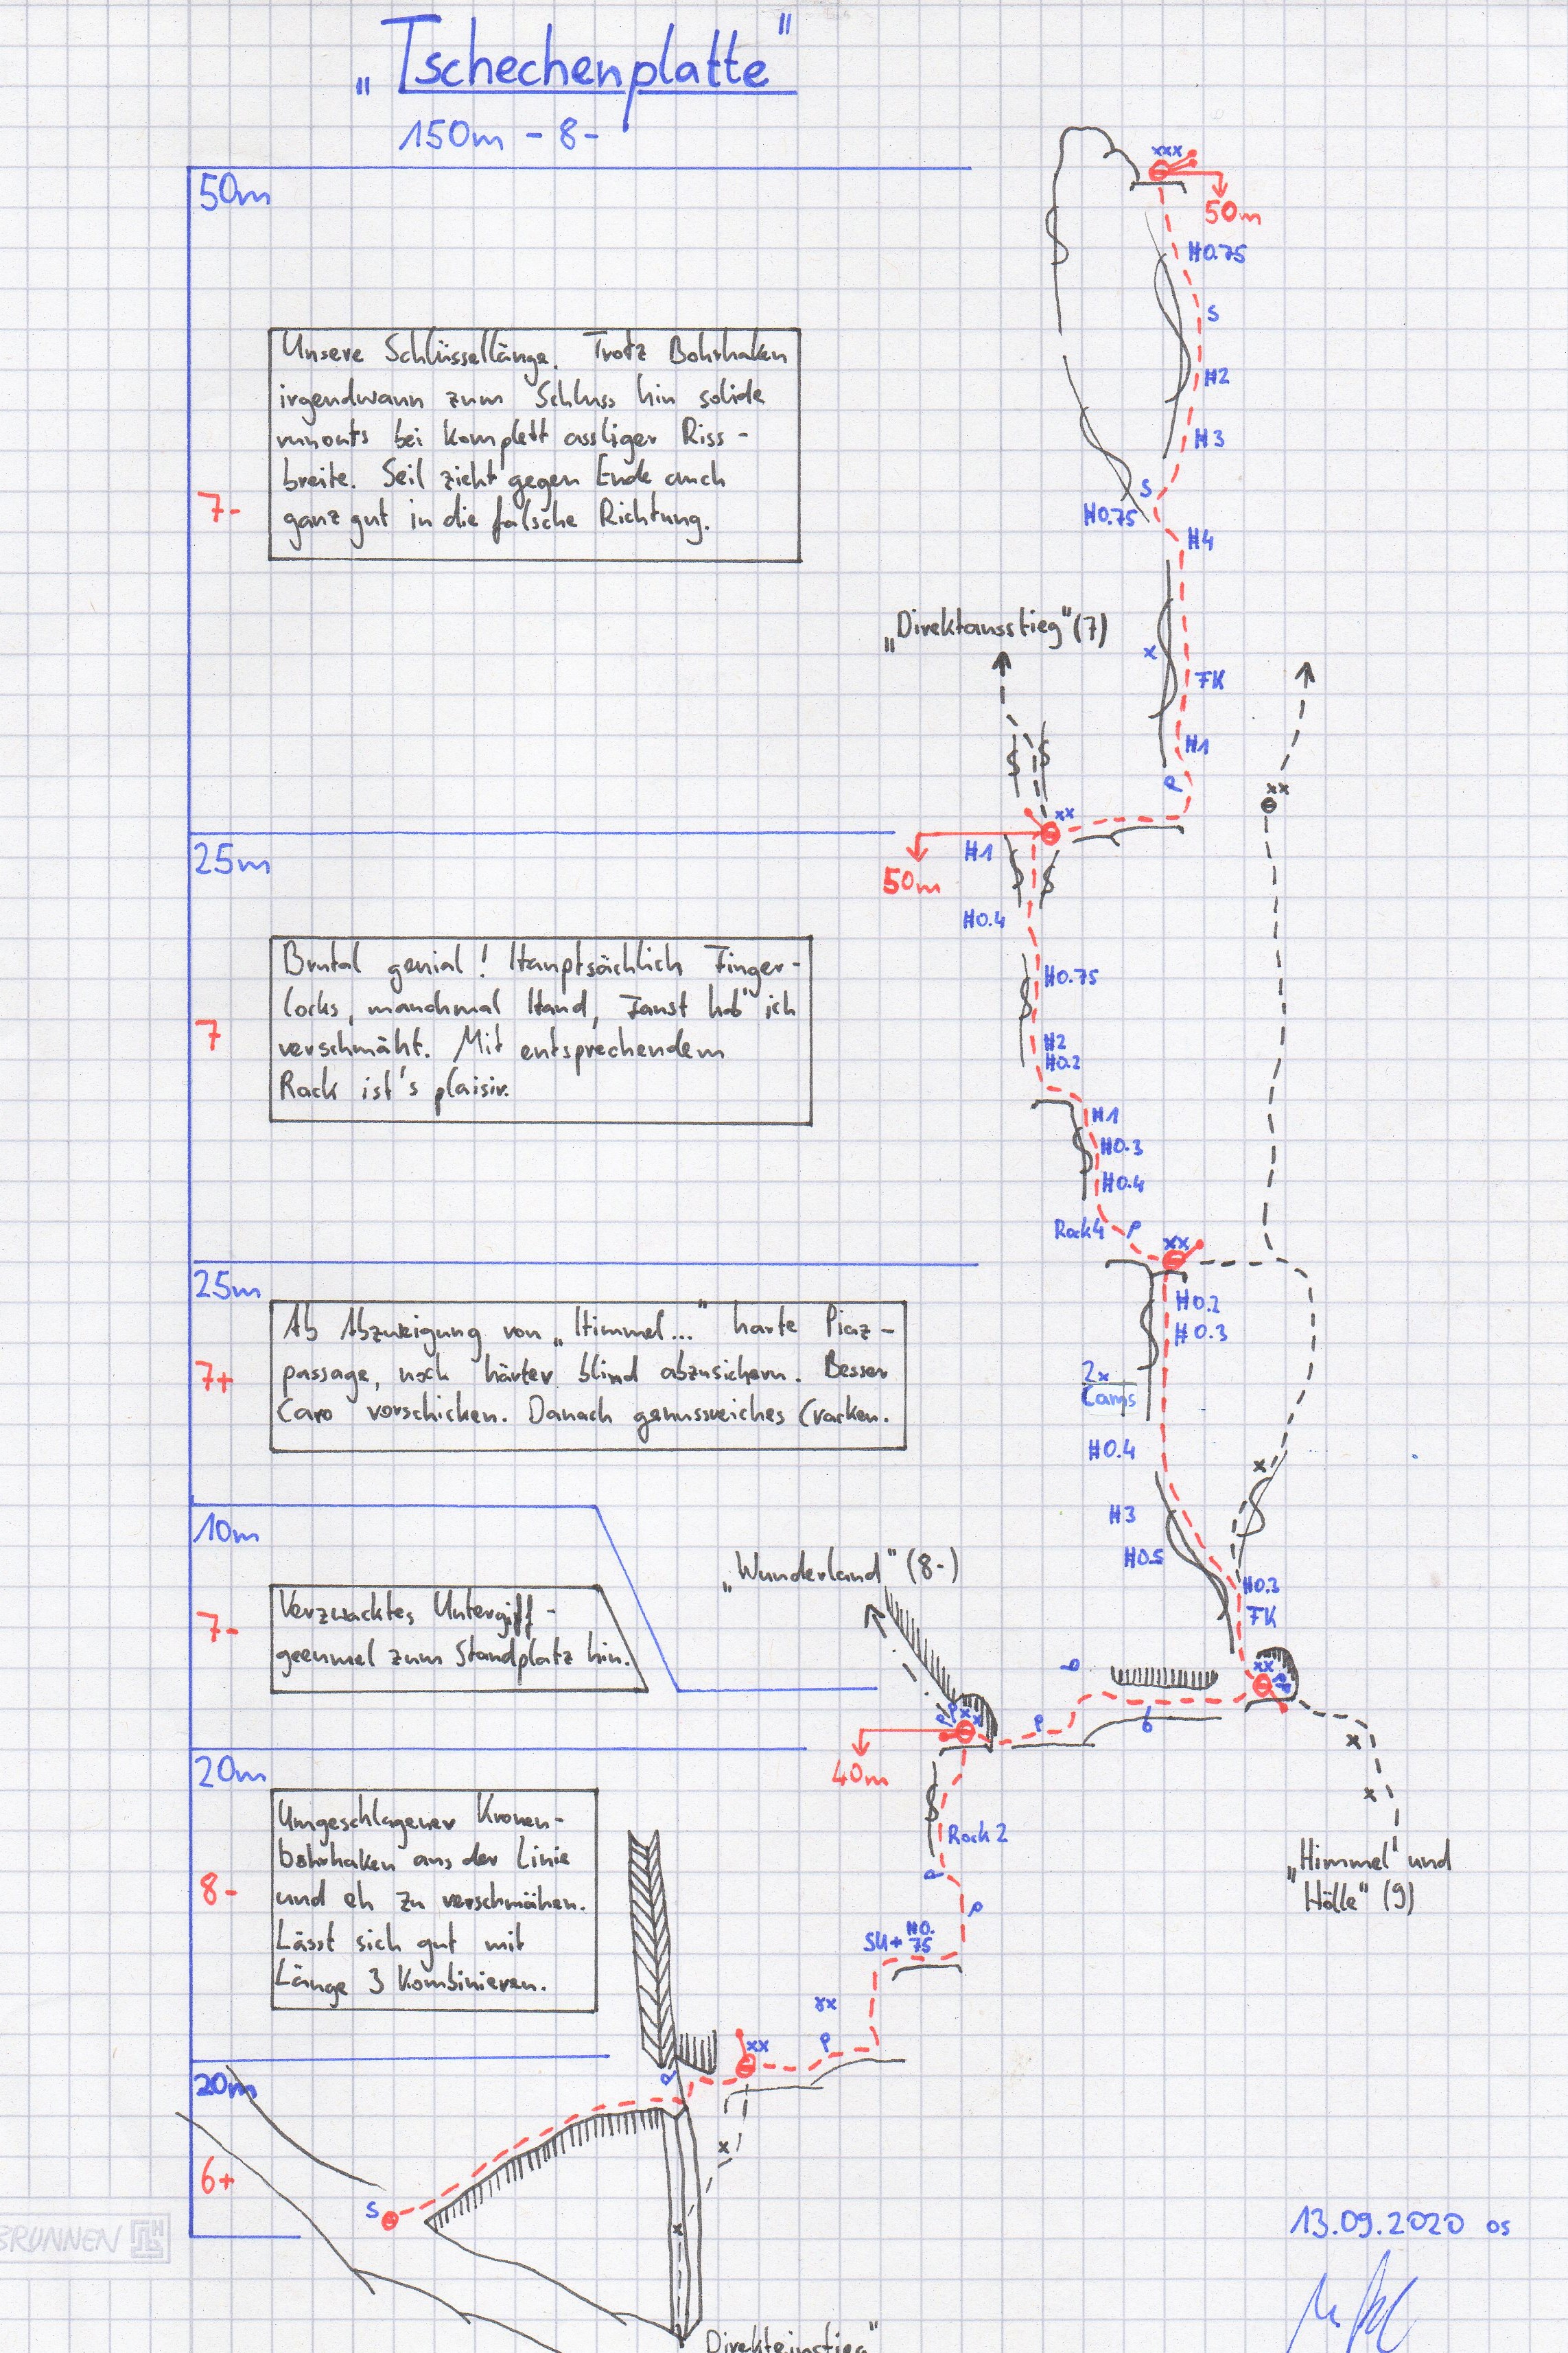 „Tschechenplatte"
150m - 8-
50m
xxx
50m
H0.75
S
H2
H3
S
H0.75
H4
Unsere Schlüssellänge. Trotz Bohrhaken
irgendwann zum Schluss hin solide
runouts bei komplett assliger Riss-
breite. Seil zieht gegen Ende auch
ganz gut in die falsche Richtung.
7-
„Direktausstieg" (7)
x
FK
H1
xx
xx
25m
H1
50m
H0.4
H0.75
H2
H0.2
Brutal genial! Hauptsächlich Finger-
locks, manchmal Hand, Faust hab' ich
verschmäht. Mit entsprechendem
Rack ist's plaisir.
7
H1
H0.3
H0.4
Rock4
xx
25m
H0.2
H0.3
Ab Abzweigung von „Himmel..." harte Piaz-
passage, noch härter blind abzusichern. Besser
Caro vorschicken. Danach genussreiches Cracken.
7+
2x
Cams
H0.4
x
H3
H0.5
10m
H0.3
FK
„Wunderland" (8-)
Verzwacktes Untergiff-
geemmel zum Standplatz hin.
7-
xx
x x
40m
x
x
20m
Rock 2
„Himmel und
Hölle" (9)
Umgeschlagener Kronen-
bohrhaken aus der Linie
und eh zu verschmähen.
Lässt sich gut mit
Länge 3 kombinieren.
8-
SU+ H0.
75
xx
xx
20m
x
6+
S
x
13.09.2020 os
„Direkteinstieg"
BRUNNEN